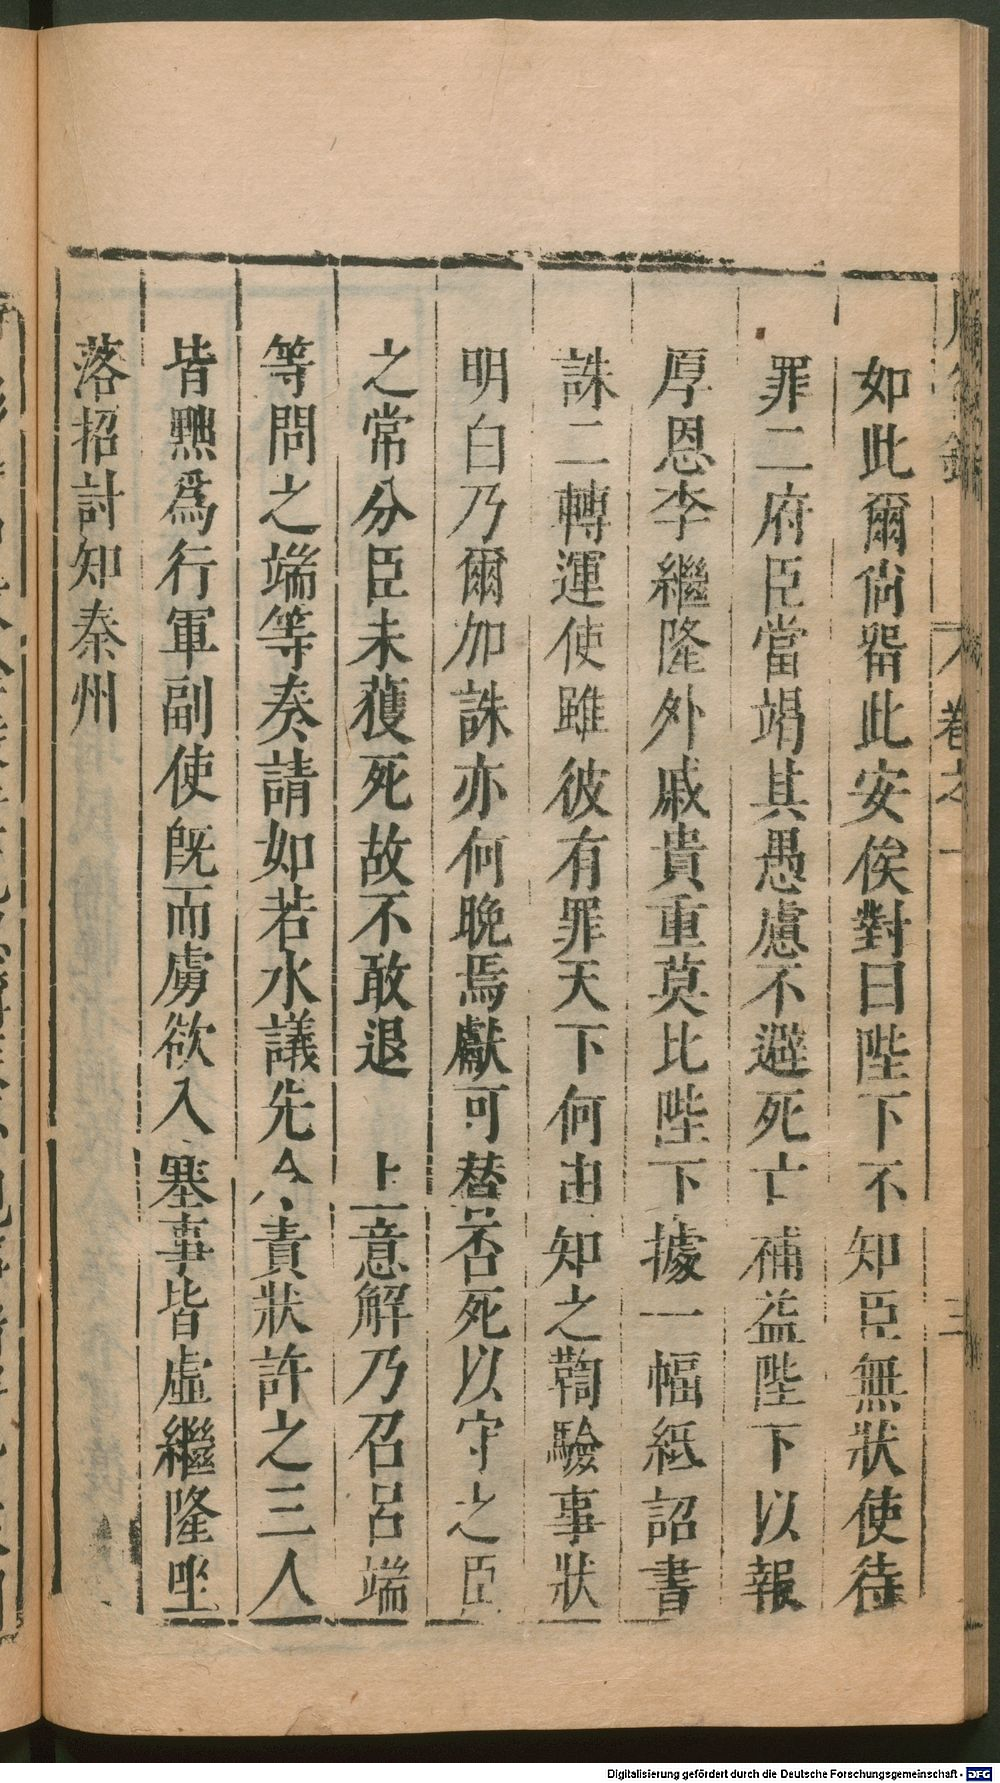 如此爾尙畱此安俟對曰陛下不知臣無狀使待
罪二府臣當竭其愚慮不避死亡補益陛下以報
厚恩李繼隆外戚貴重莫比陛下據一幅紙詔書
誅二轉運使雖彼有罪天下何由知之鞫驗事狀
明白乃爾加誅亦何晩焉獻可替否死以守之臣
之常分臣未獲死故不敢退 上意解乃召呂端
等問之端等奏請如若水議先令責狀許之三人
皆黜爲行軍副使旣而虜欲入塞事皆虛繼隆坐
落招討知秦州
卷之一
三
Digitalisierung gefördert durch die Deutsche Forschungsgemeinschaft - DFG